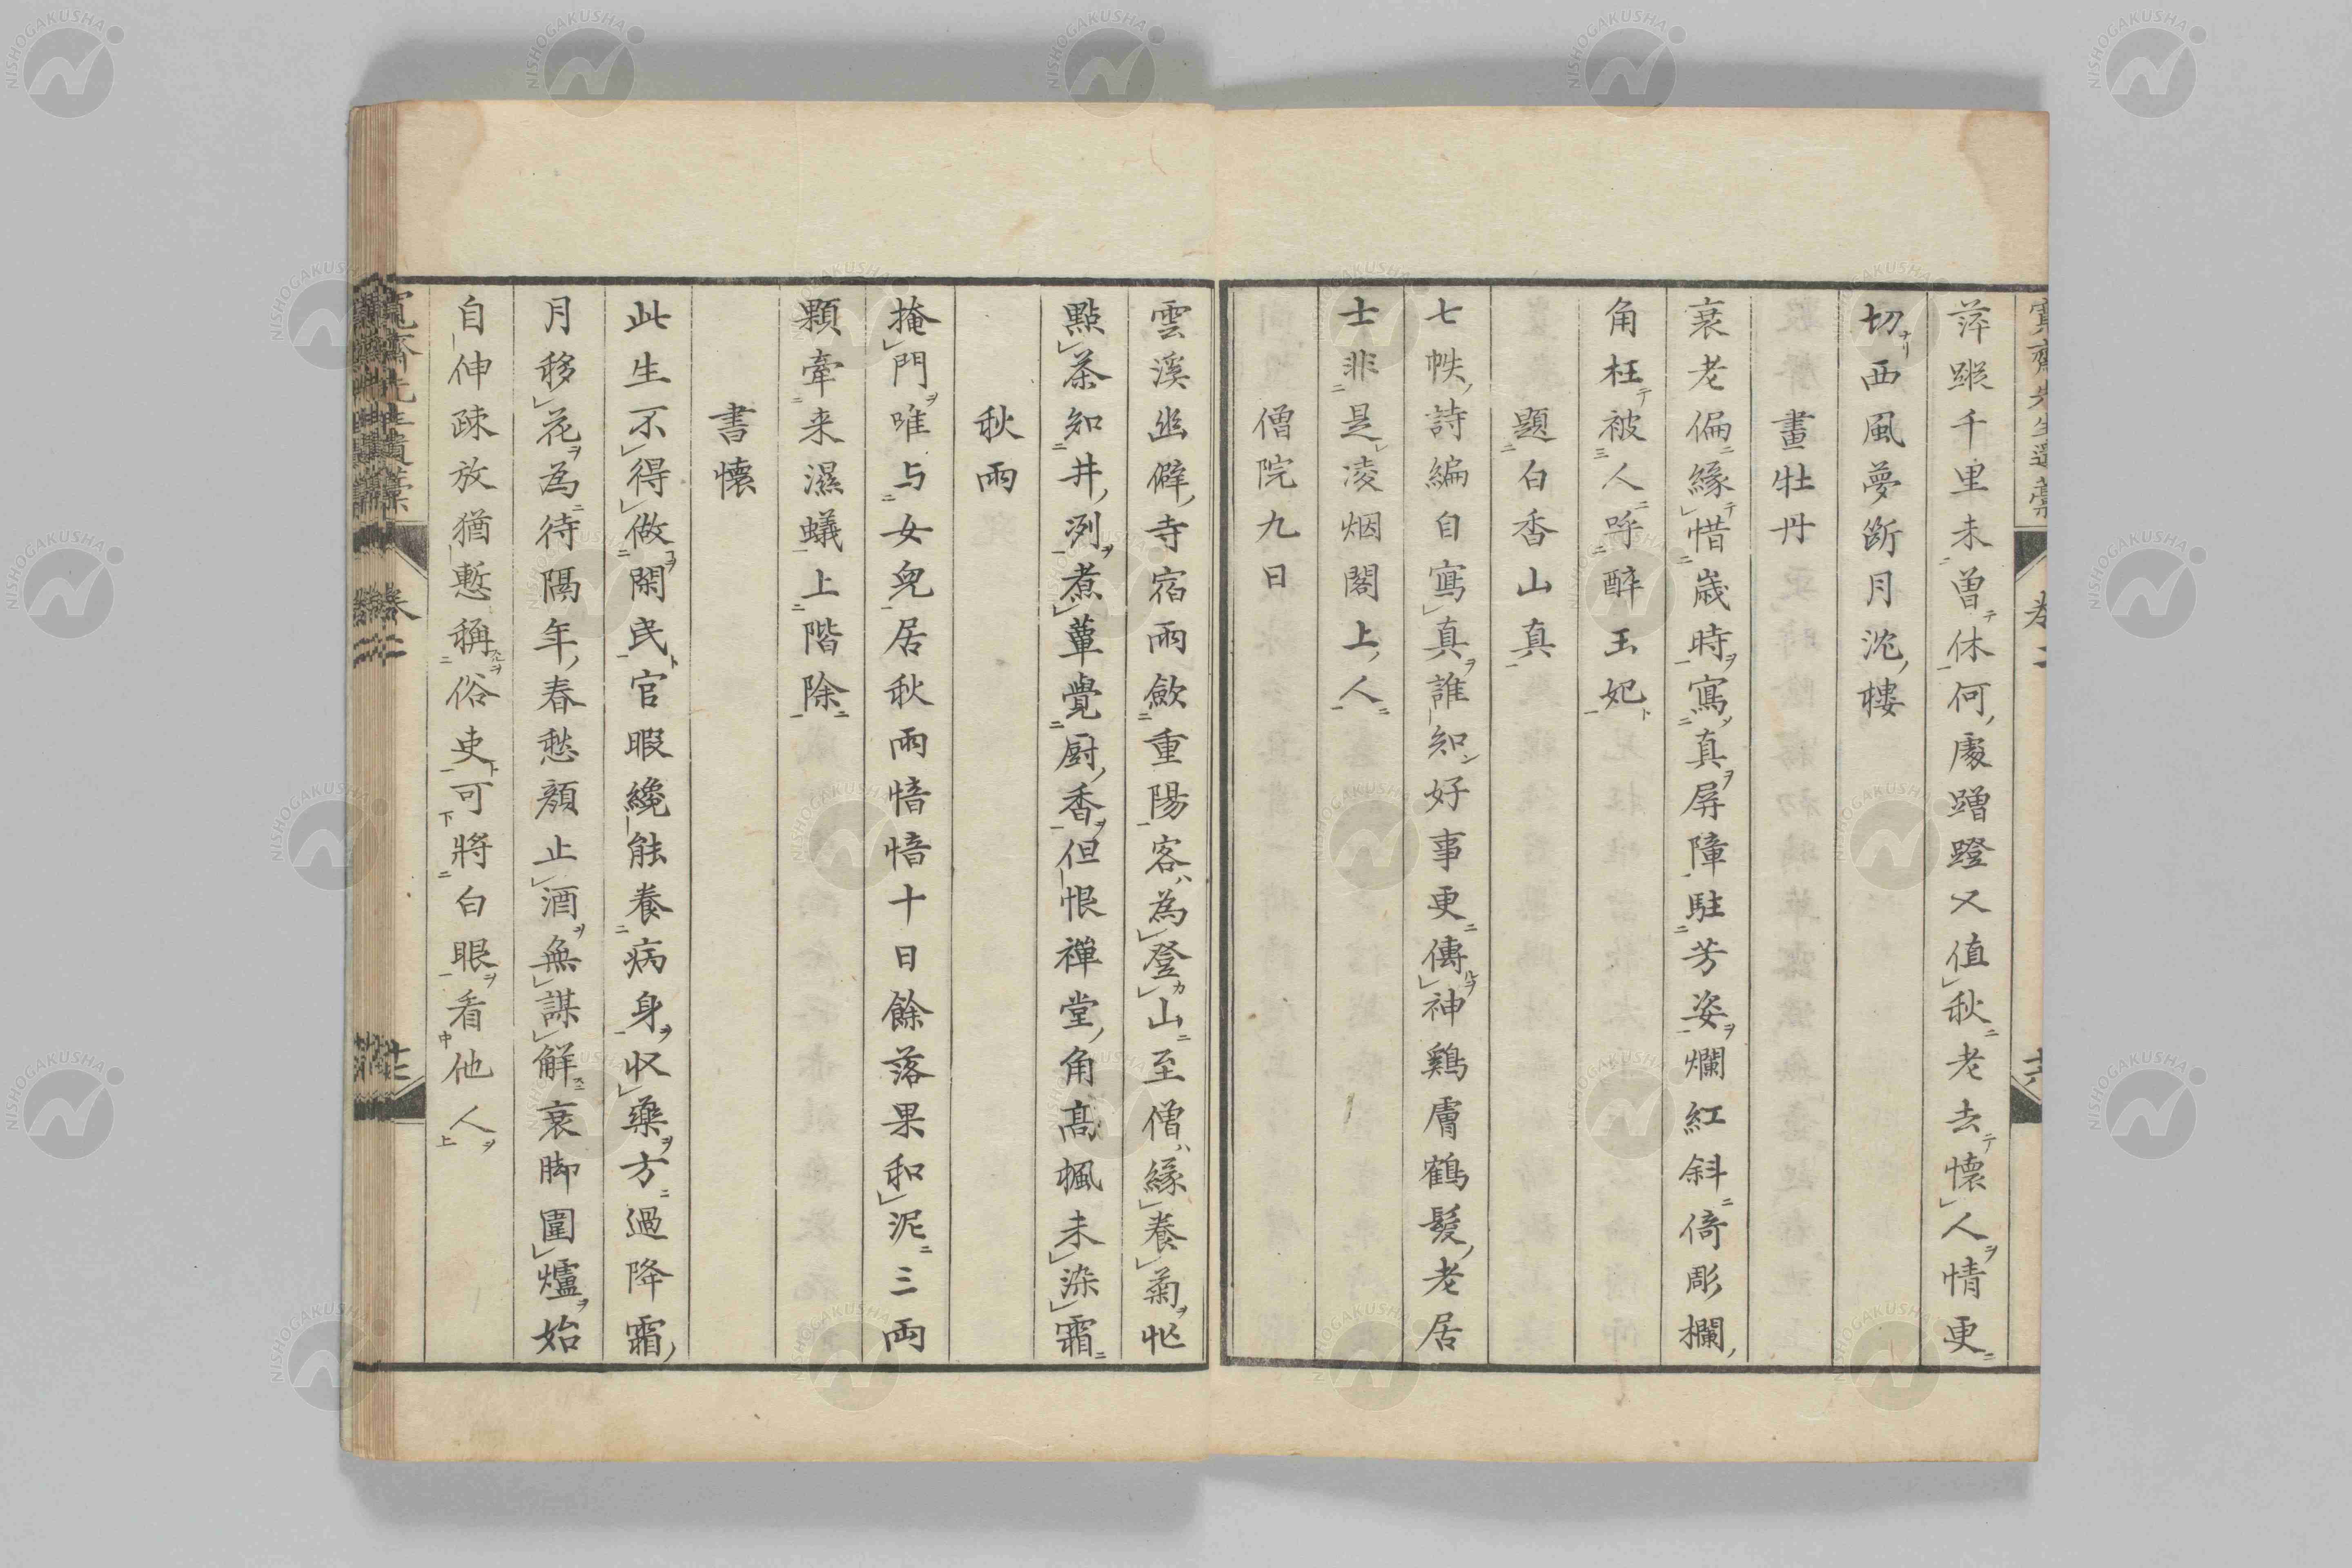 寛齋先生遺藁
卷二
十六
萍蹤千里未曽休何處蹭蹬又值秋老去懷人情更
切西風夢斷月沈樓
畫牡丹
衰老偏緣惜歳時寫真屏障駐芳姿爛紅斜倚彫欄
角枉被人呼醉玉妃
題白香山真
七帙詩編自寫真誰知好事更傳神鷄膚鶴髮老居
士非是凌烟閣上人
僧院九日
雲溪幽僻寺宿雨歛重陽客為登山至僧緣養菊忙
點茶知井冽煮蕈覺厨香但恨禪堂角髙楓未染霜
秋雨
掩門唯与女兒居秋雨愔愔十日餘落果和泥三両
顆牽来濕蟻上階除
書懷
此生不得做閑民官暇纔能養病身収藥方過降霜
月移花為待隔年春愁顔止酒無謀解衰脚圍爐始
自伸疎放猶慙稱俗吏可將白眼看他人
寛齋先生遺藁
卷二
十七
NISHOGAKUSHA